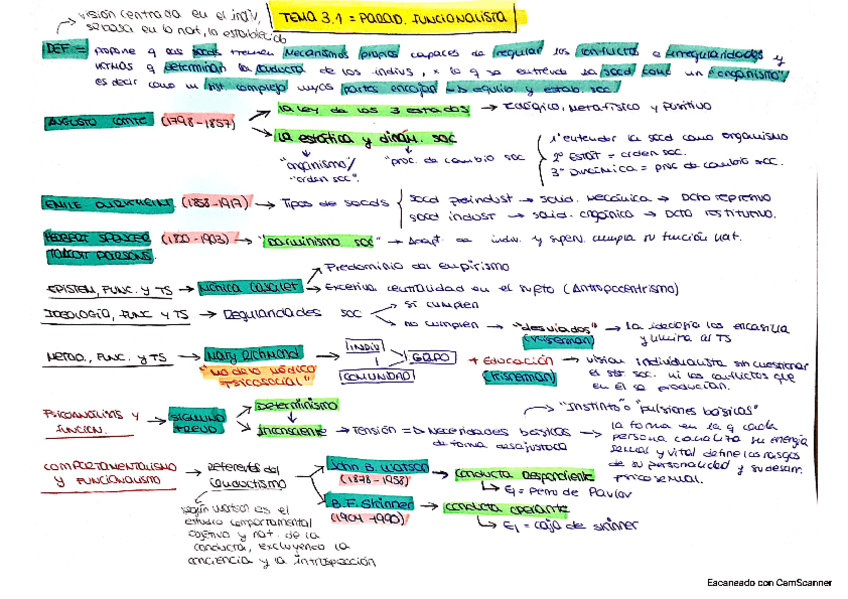 visión centrada en el indiv,
se basa en lo nat, lo establecido
TEMA 3.1 = PARAD. FUNCIONALISTA
DEF = propone q las socds tienen mecanismos propios capaces de regular los conflictos e irregularidades y
normas q determinan la conducta de los indivs, x lo q se entiende la socd como un "organismo"
es decir como un sist complejo cuyas partes encajan → equilib. y estab. soc
AUGUSTO COMTE (1798-1857)
la ley de los 3 estados → Teológico, Metafísico y Positivo
la estática y dinám. soc
"organismo/
"orden soc".
"proc. de cambio soc
1º entender la socd como organismo
2º Estát = orden soc.
3º Dinámica = proc de cambio soc.
EMILE DURKHEIM (1858-1917) → Tipos de socds
socd preindust → solid. mecánica → Dcto represivo
socd indust → solid. orgánica → Dcto restitutivo.
HERBERT SPENCER (1820-1903) → "Darwinismo soc" → Adapt. del indiv. y superv. cumpla su función nat.
TALCOTT PARSONS.
EPISTEM, FUNC. Y TS → Mónica Casalet
Predominio del empirismo
Excesiva centralidad en el sujeto (Antropocentrismo)
IDEOLOGÍA, FUNC Y TS → Regularidades soc
si cumplen
no cumplen → "desviados" → la ideología los encasilla
(Kisnerman)
y limita al TS
METOD., FUNC. Y TS → Mary Richmond
"modelo médico
psicosocial"
INDIV
GRUPO
COMUNIDAD
+ Educación
(Kisnerman)
visión individualista sin cuestionar
el sist soc. ni los conflictos que
en él se producían.
PSICOANÁLISIS Y
FUNCION.
SIGMUND
FREUD
Determinismo
Inconsciente → Tensión = Necesidades básicas
de forma desajustada
"Instinto" o "pulsiones básicas"
la forma en la q cada
persona canaliza su energía
sexual y vital define los rasgos
de su personalidad y su desarr.
psicosexual.
COMPORTAMENTALISMO
Y FUNCIONALISMO
Referentes del
conductismo
según Watson es el
estudio comportamental
objetivo y nat. de la
conducta, excluyendo la
conciencia y la introspección
John B. Watson
(1878-1958)
conducta Respondiente
Ej = Perro de Pavlov
B.F. Skinner
(1904-1990)
conducta operante
Ej = caja de skinner
Escaneado con CamScanner